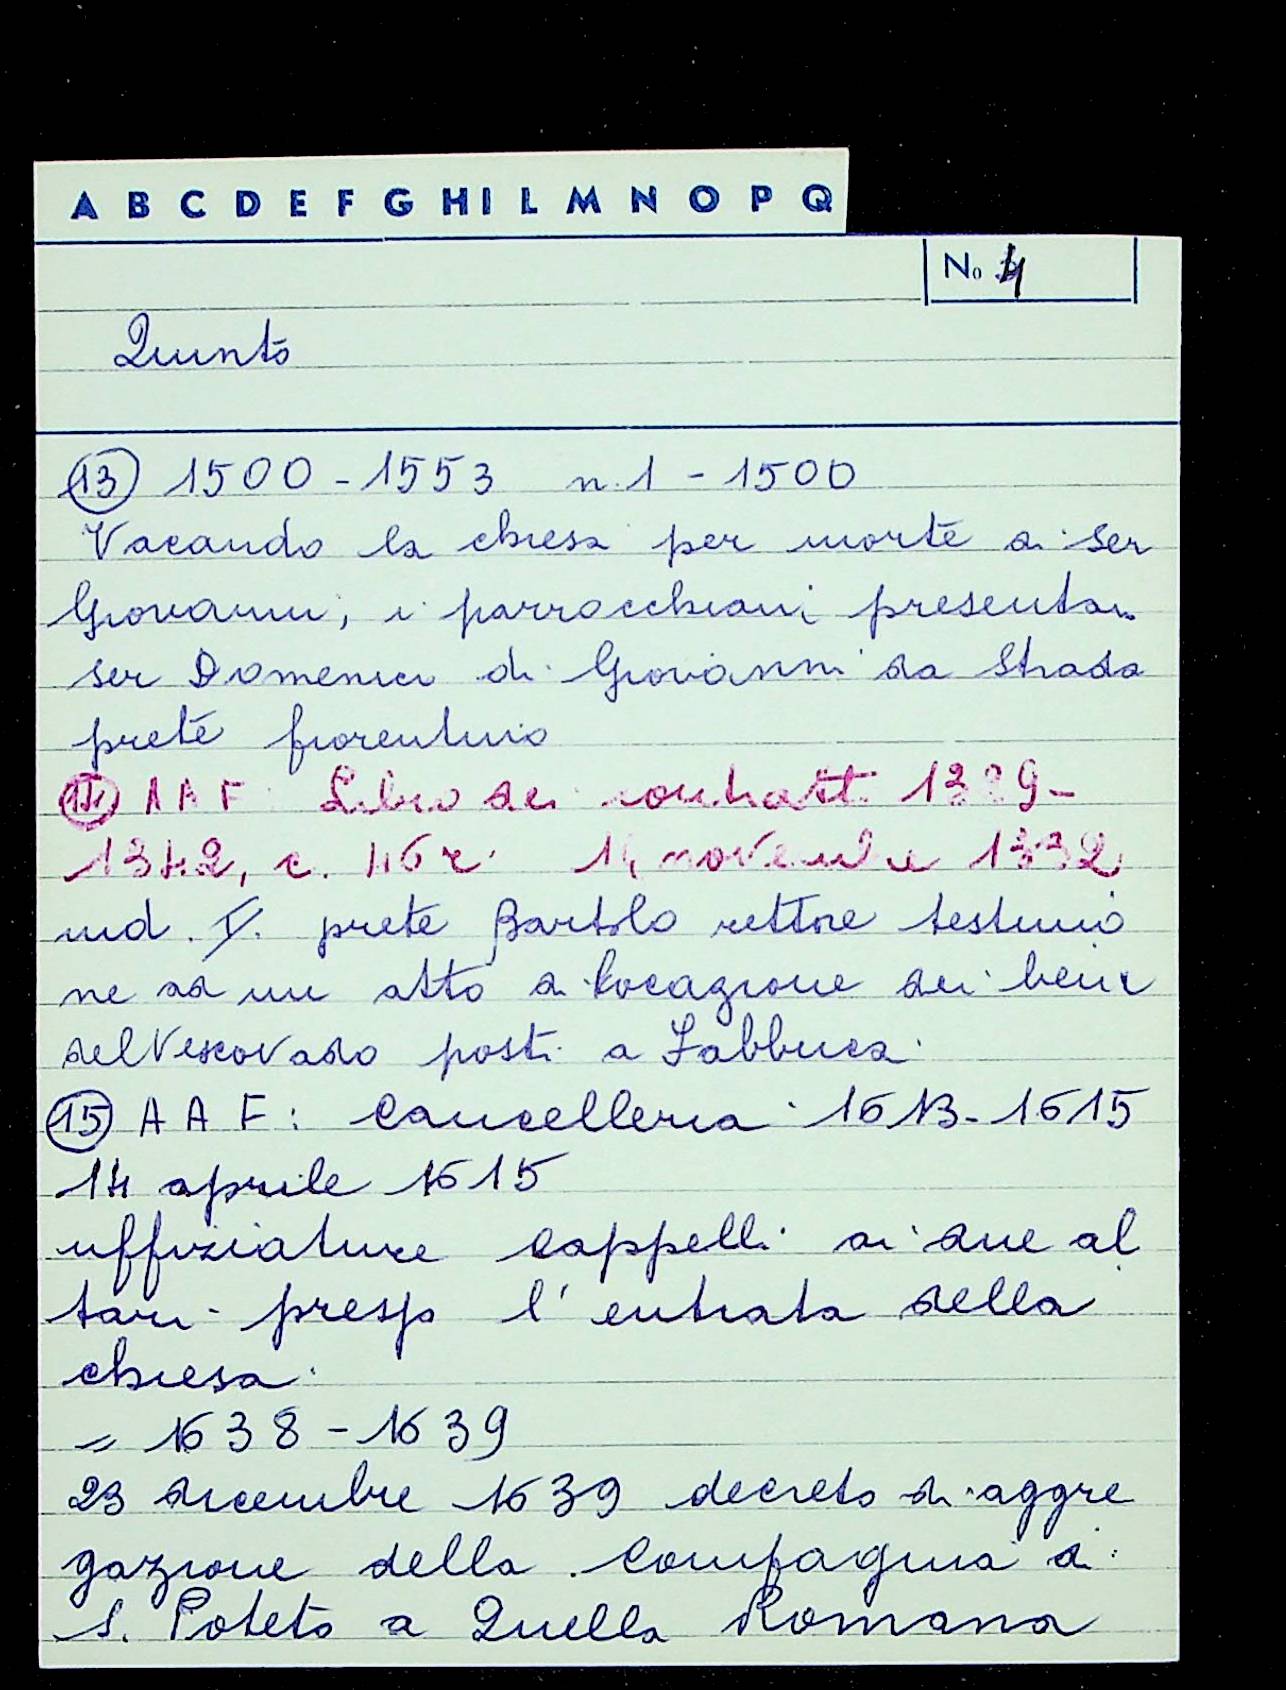 A B C D E F G H I L M N O P Q
No 4
Quinto
13 1500-1553 n.1 - 1500
Vacando la chiesa per morte di ser
Giovanni, i parrocchiani presentan
ser Domenico di Giovanni da Strada
prete fiorentino
14 A A F: Libro dei contratti 1339-
1342, c. 46r. 14 novembre 1332
ind. V. prete Bartolo rettore testimo
ne ad un atto di locazione dei beni
del Vescovado posti a Labbuca.
15 A A F: Cancelleria. 1613-1615
14 aprile 1615
uffiziature cappelli ai due al
tari presso l'entrata della
chiesa.
= 1638-1639
23 dicembre 1639 decreto di aggre
gazione della Compagnia di
S. Poteto a Quella Romana